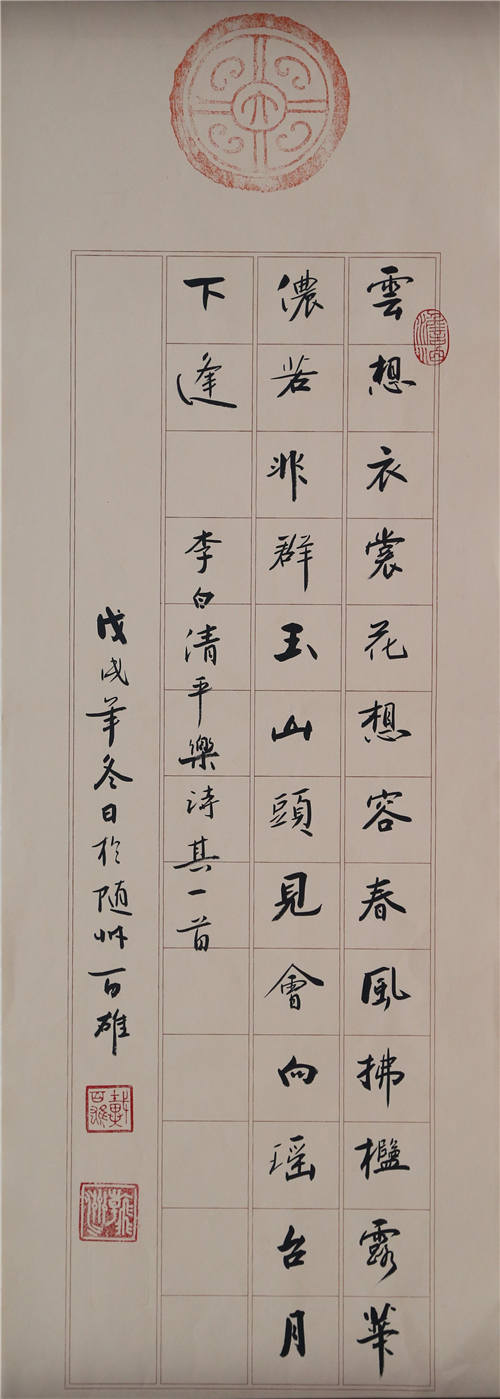 雲想衣裳花想容春風拂檻露華
儂若非群玉山頭見會向瑶台月
下逢
李白清平樂詩其一首
戊戌年冬日於随州百雄